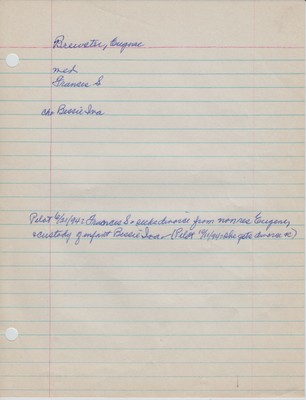 Brewster, Eugene
med
Frances S
ch: Bessie Ina
Pilot 6/21/94: Frances S seeks divorce from nonres Eugene,
& custody of infant Bessie Ina (Pilot 10/11/94: she gets divorce &c)